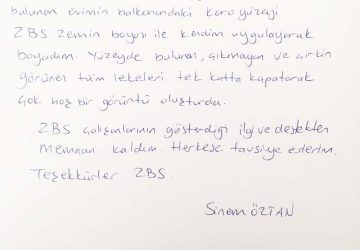 bulunan evimin balkonundaki karo yüzeyi
ZBS zemin boyası ile kendim uygulayarak
boyadım. Yüzeyde bulunan, çıkmayan ve çirkin
görünen tüm lekeleri tek katta kapatarak
çok hoş bir görüntü oluşturdu.
ZBS çalışanlarının gösterdiği ilgi ve destekten
memnun kaldım. Herkese tavsiye ederim.
Teşekkürler ZBS.
Sinem ÖZTAN